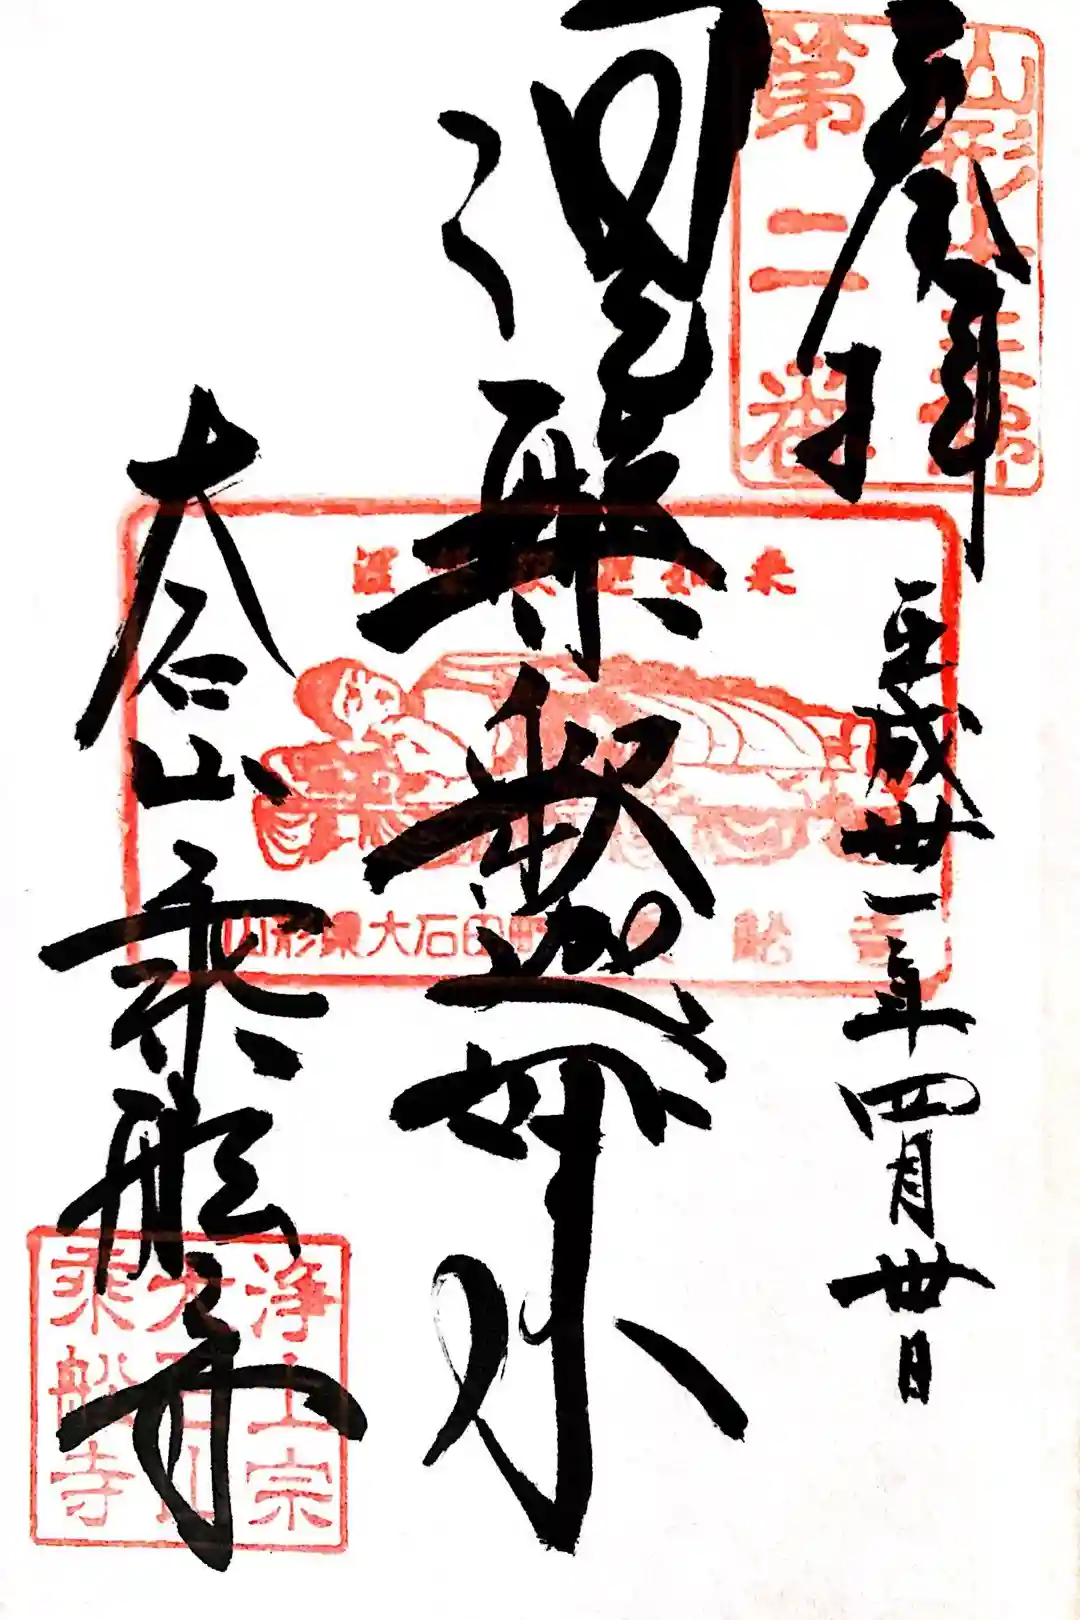 奉拝
平成卅一年四月卅日
涅槃釈迦如来
大石山乗船寺
山形十三佛
第二番
山形県大石田町 乗船寺
浄土宗
大石山
乗船寺